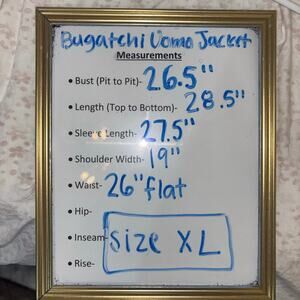 Bugatchi Uomo Jacket
Measurements
• Bust (Pit to Pit)- 26.5"
• Length (Top to Bottom)- 28.5"
• Sleeve Length- 27.5"
• Shoulder Width- 19"
• Waist- 26" flat
• Hip-
• Inseam- Size XL
• Rise-